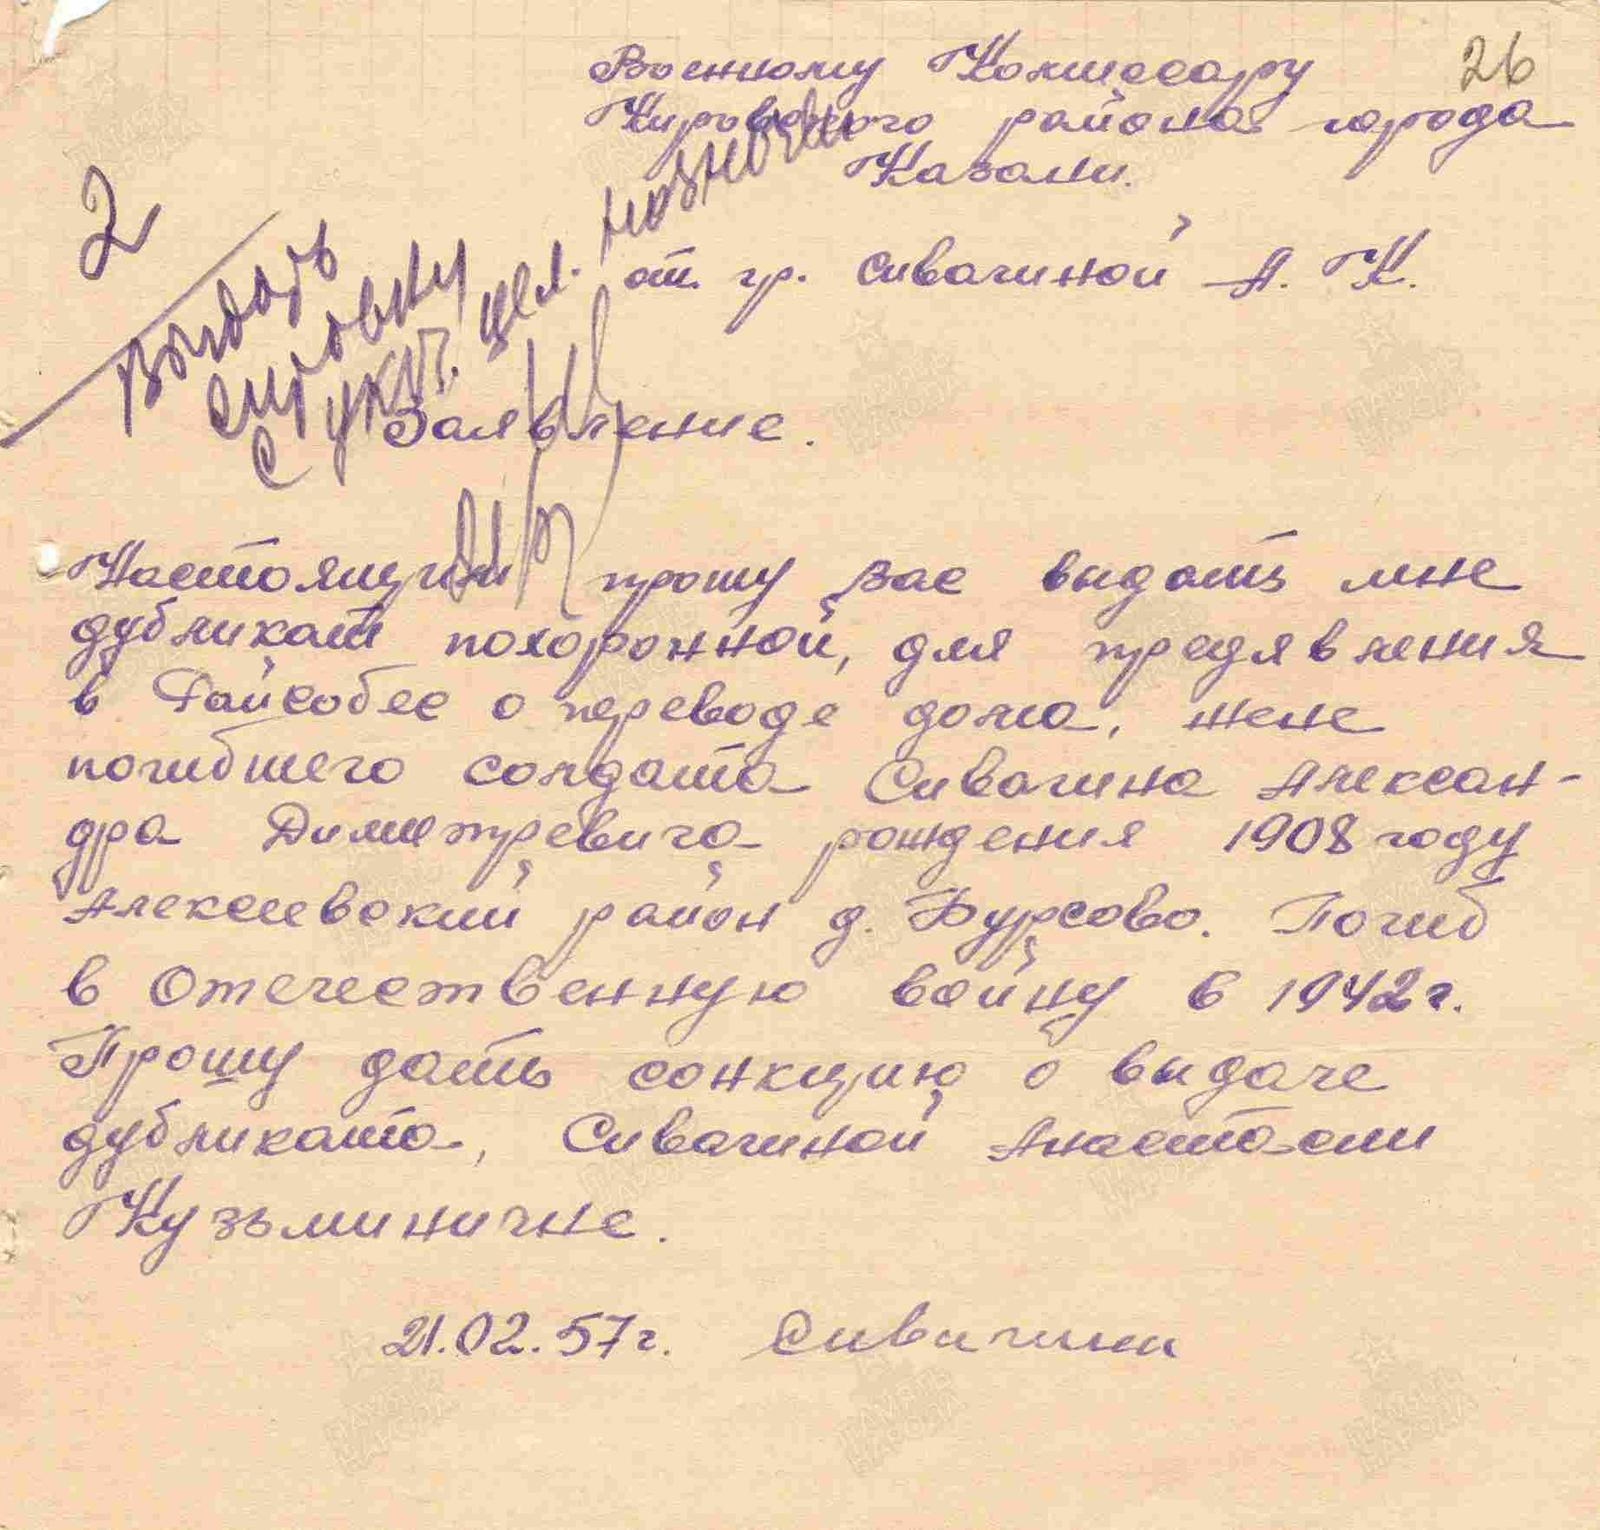 26
Военному Комисеару
Кировского района города
Казани.
от гр. Сивачиной А. К.
2
Выдать
справку
с указ. цел. назначен
Заявление.
Настоящим прошу вас выдать мне
дубликат похоронной, для предявления
в Райсобес о переводе дома, жене
погибшего солдата Сивачина Алексан-
дра Димитревича рождения 1908 году
Алексеевский район д. Бурсово. Погиб
в Отечественную войну в 1942г.
Прошу дать санкцию о выдаче
дубликата, Сивачиной Анастасии
Кузьминичне.
21.02.57г. Сивачина
ПАМЯТЬ НАРОДА